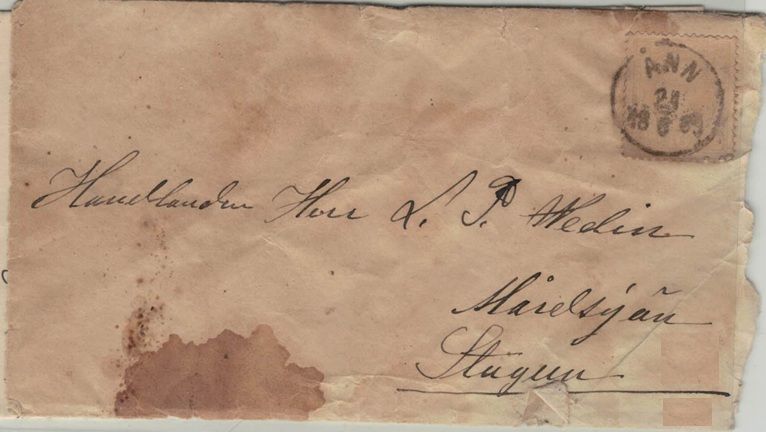 ÅNN
21
18 6 89
Handlanden Herr L. P. Wedin
Mårdsjön
Stugun